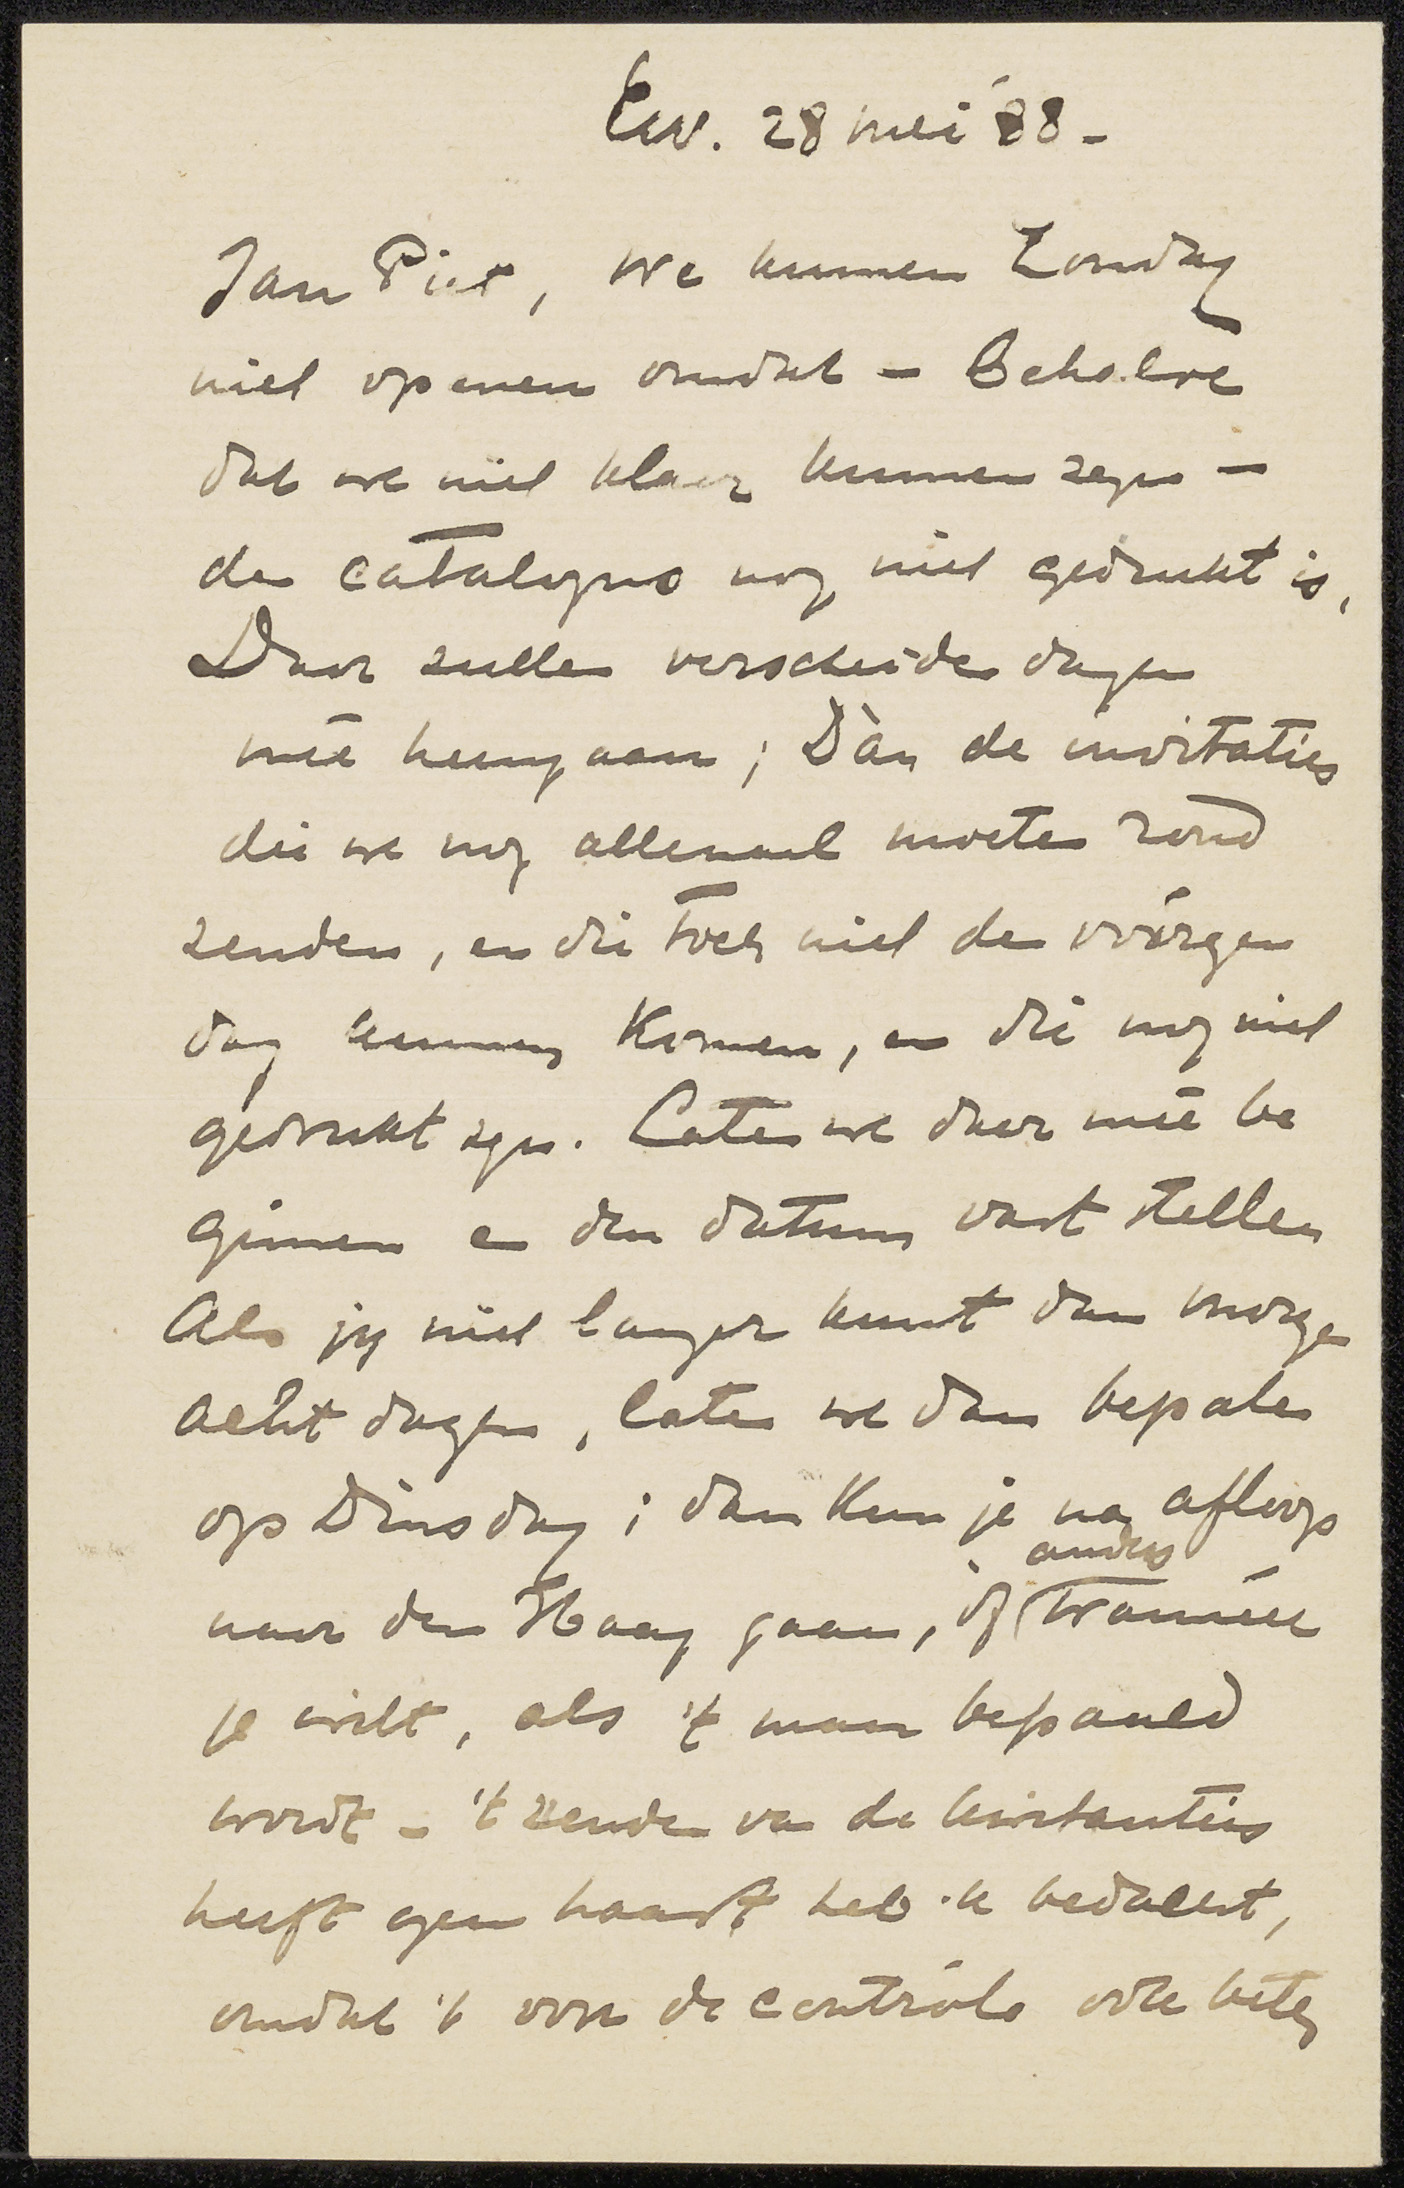 28 mei '88 -
Jan Piet, we kunnen Zondag
niet openen omdat - Behalve
dat we niet klaar kunnen zyn -
de catalogus nog niet gedrukt is,
Daar zullen verscheide dagen
meê heengaan; Dàn de invitaties
die we nog allemaal moeten rond
zenden, en die toch niet de vóórigen
dag kunnen komen, en die nog niet
gedrukt zyn. Laten we daar meê be
ginnen en den datum vast stellen
Als jy niet langer kunt dan morge
acht dagen, laten we dan bepalen
op Dinsdag; dan kun je na afloop
anders
naar den Haag gaan, òf wannéér
je wilt, als 't maar bepaald
wordt - 't zenden van de
heeft geen haast heb ik bedacht,
omdat 't voor de contrôle ook beter